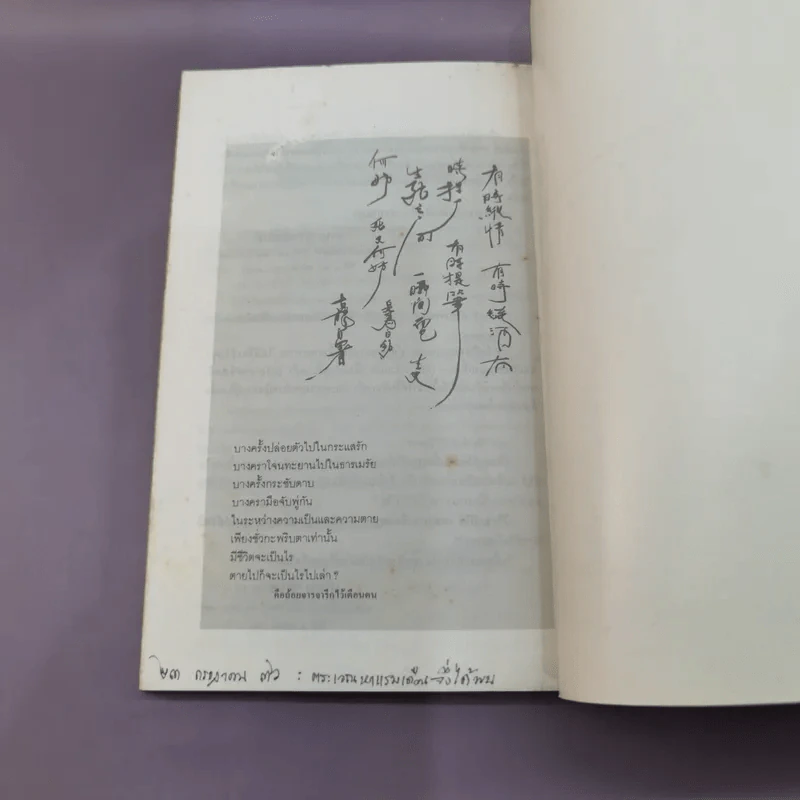 有時縱情 有時縱酒 有
有時提筆
一瞬間
何妨 死又何妨
บางครั้งปล่อยตัวไปในกระแสรัก
บางคราโจนทะยานไปในธารเมรัย
บางครั้งกระชับดาบ
บางครามือจับพู่กัน
ในระหว่างความเป็นและความตาย
เพียงชั่วกะพริบตาเท่านั้น
มีชีวิตจะเป็นไร
ตายไปก็จะเป็นไรไปเล่า ?
คือถ้อยจารจารึกไว้เตือนตน
๒๓ กรกฎาคม ๓๖ : ตระเวนหาแรมเดือนจึงได้พบ